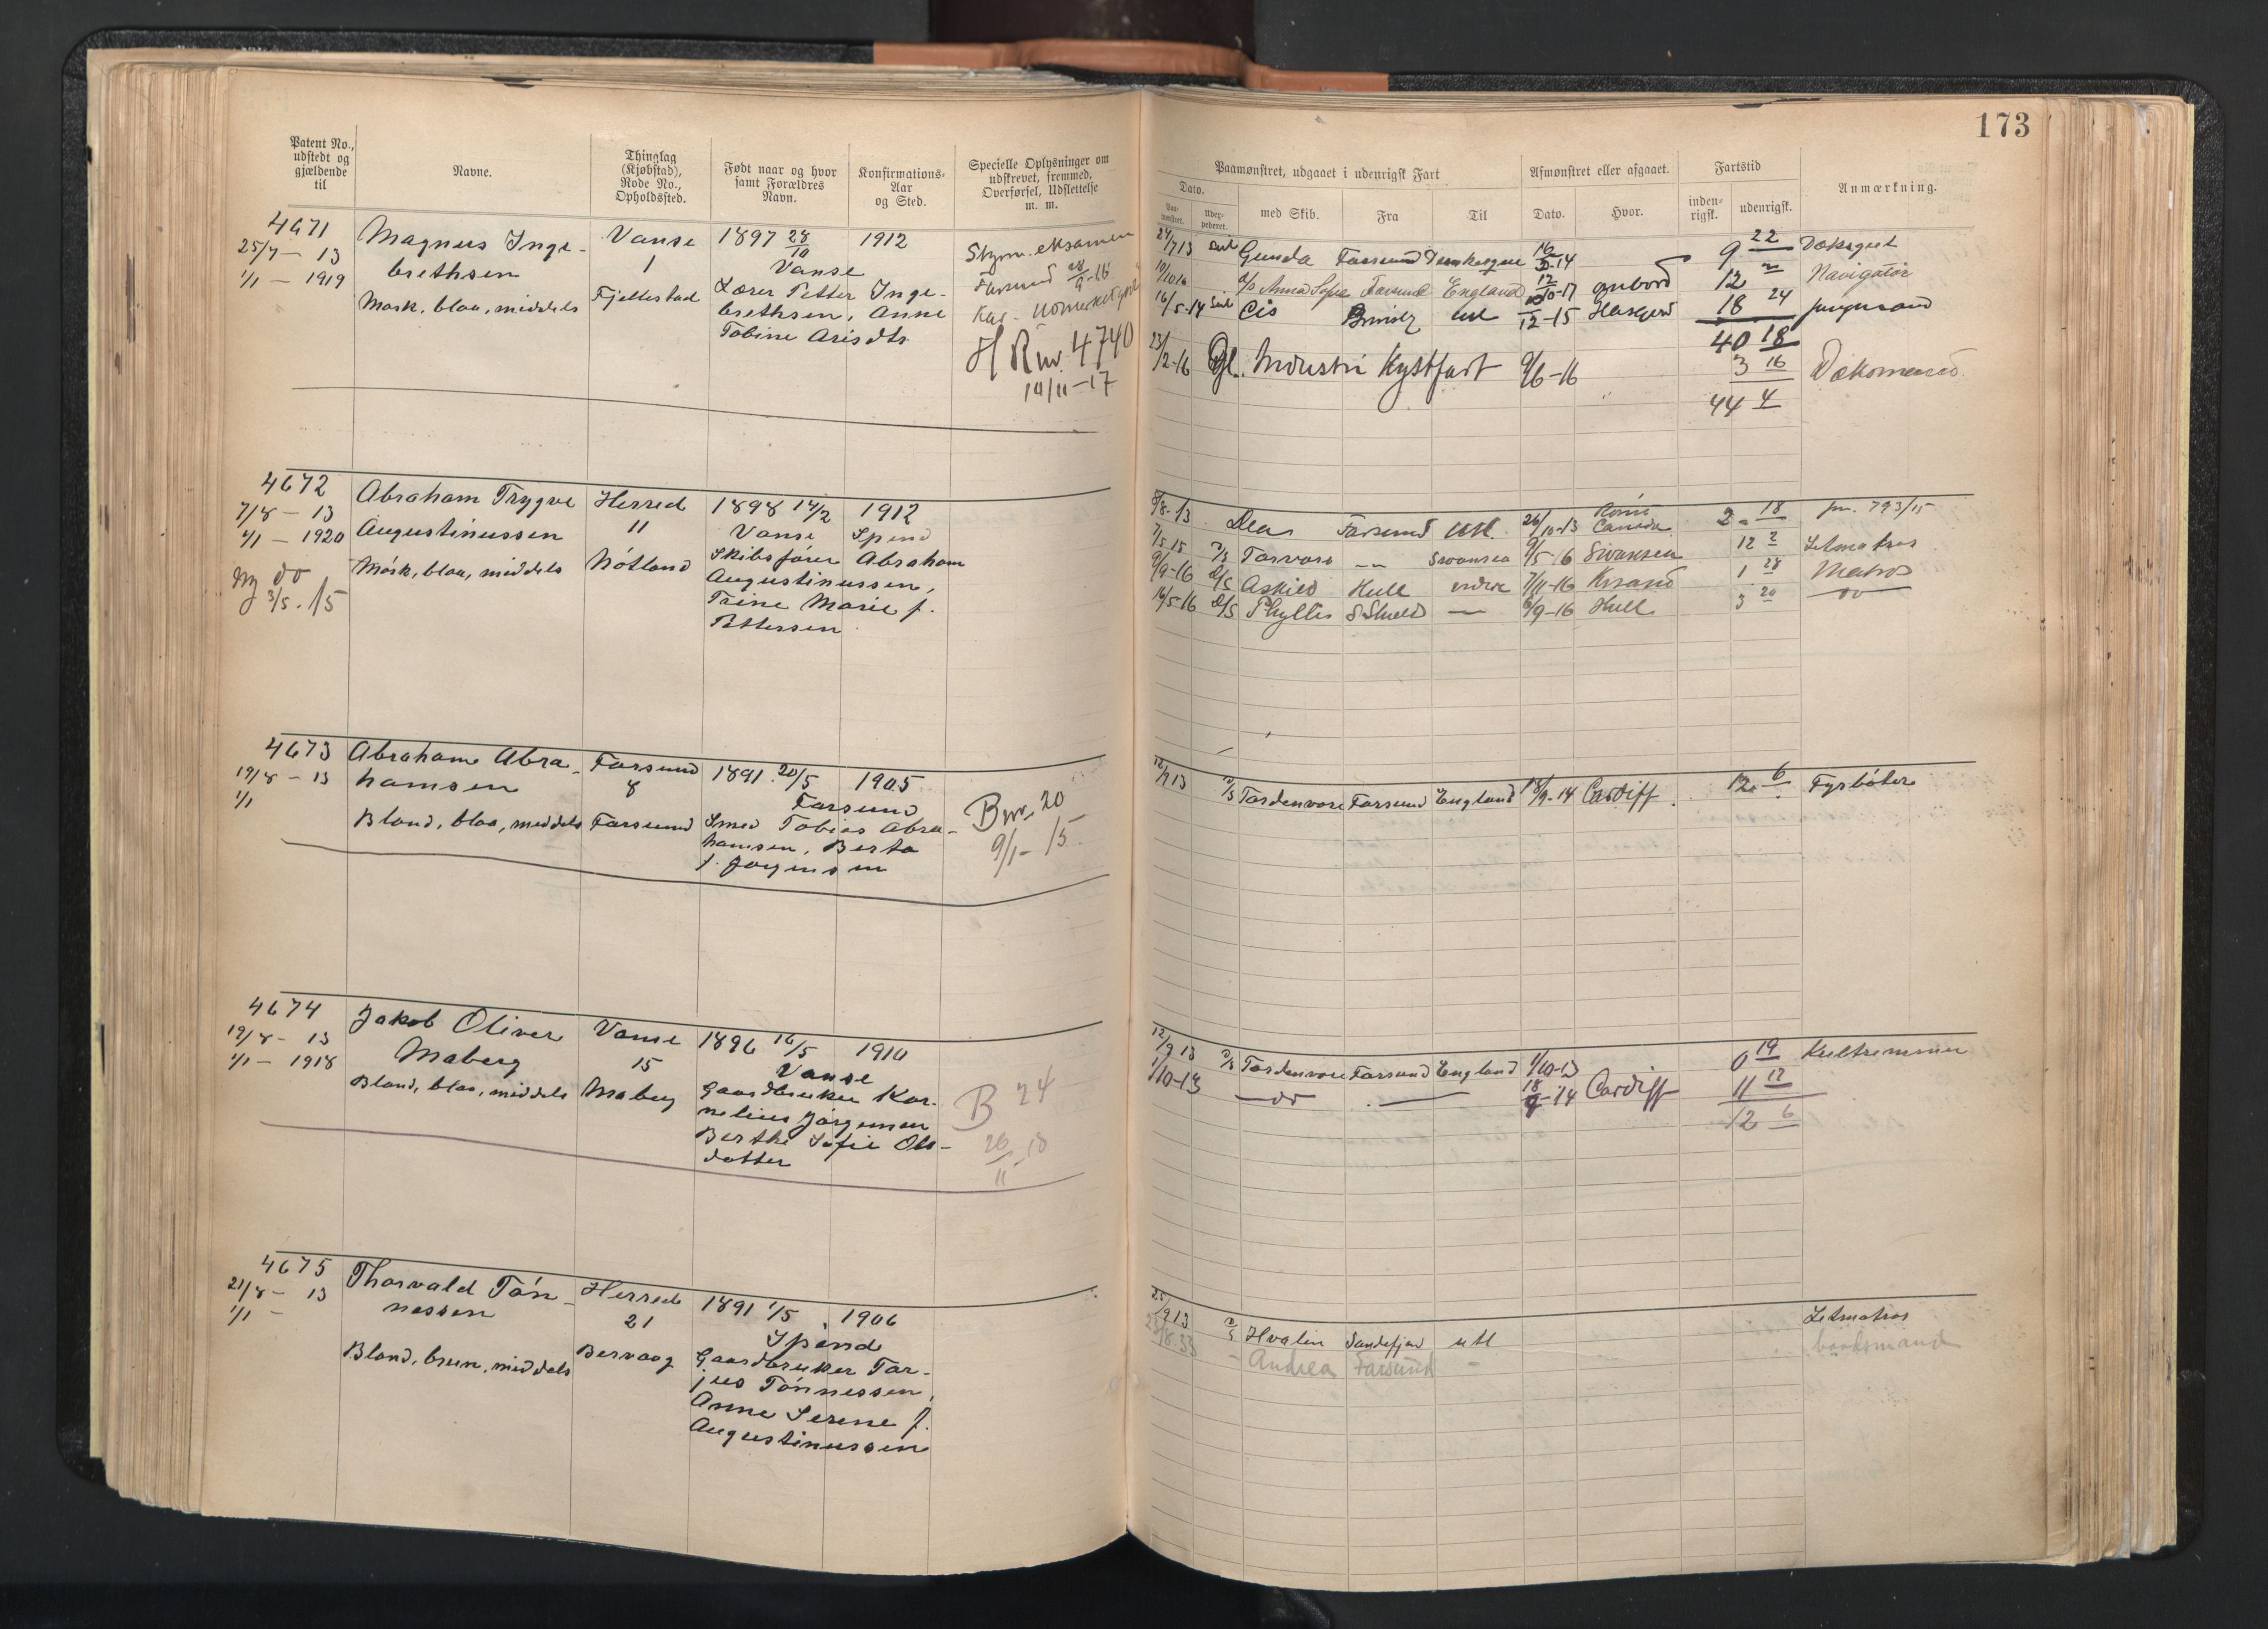 173
Patent No., udstedt og gjældende til
Navne.
Thinglag (Kjøbstad), Rode No., Opholdssted.
Født naar og hvor samt Forældres Navn.
Konfirmations-Aar og Sted.
Specielle Oplysninger om udskrevet, fremmed, Overførsel, Udslettelse m. m.
Paamønstret, udgaaet i udenrigsk Fart
Afmønstret eller afgaaet.
Fartstid
Anmærkning.
Dato.
Paa-mønstret.
med Skib.
Fra
Til
Dato.
Hvor.
inden-rigsk.
udenrigsk.
4671
25/7 - 13
1/1 - 1919
Magnus Inge-
brethsen
Mørk, blaa, middels
Vanse
1
Fjellestad
1897 28/10
1912
Vanse
Lærer Petter Inge-
brethsen, Anne
Tobine Arisdtr
Styrm. eksamen
Farsund
Rw. 4740
14/11-17
Gunda Farsund 9 22
Anna Sofie Farsund England ombord 12 Navigatør
16/5-14 Cis 12-15 18 24 jungmand
40 18
23/2-16 Industri Kystfart 9/6-16 3 16
44 4
4672
7/8 - 13
1/1 - 1920
Ny do
3/5 - 15
Abraham Trygve
Augustinussen
Mørk, blaa, middels
Herred
11
Nótland
1898 14/2
1912
Vanse
Spind
Skibsfører Abraham
Augustinussen,
Trine Marie f.
Pettersen
8/8-13 Dea Farsund Utl. 26/10-13 Canada 2 18 jn. 793/15
7/5 15 Swansea 9/5-16 Swansea 12 2 Letmatros
9/9-16 D/S Askild Hull 7/11-16 Krsand 1 28 Matros
16/5-16 D/S Phyllis 8/9-16 Hull 3 20 do
4673
19/8 - 13
1/1
Abraham Abra-
hamsen
Blond, blaa, middels
Farsund
8
Farsund
1891 20/5
1905
Farsund
Smed Tobias Abra-
hamsen, Berta
f. Jørgensen
Bw. 20
9/1 - 15
12/9 13 Tordenvore Farsund England 18/9-14 Cardiff 12 6 Fyrbøter
4674
19/8 - 13
1/1 - 1918
Jakob Oliver
Maberg
Blond, blaa, middels
Vanse
15
Maberg
1896 16/5
1910
Vanse
Gaardbruker Kor-
nelius Jørgensen
Berthe Sofie Ols-
datter
B 24
26/11-18
12/9 13 Tordenvore Farsund England 1/10-13 0 19 Kultrimmer
1/10-13 do 18/9-14 Cardiff 11 17
12 6
4675
21/8 - 13
1/1 -
Thorvald Tøn-
nessen
Blond, brun, middels
Herred
21
Bervaag
1891 1/5
1906
Spind
Gaardbruker Tar-
jus Tønnessen,
Anne Serine f.
Augustinussen
25/9 13 Hvalen Sandefjord utl Letmatros
Andrea Farsund - baadsmand